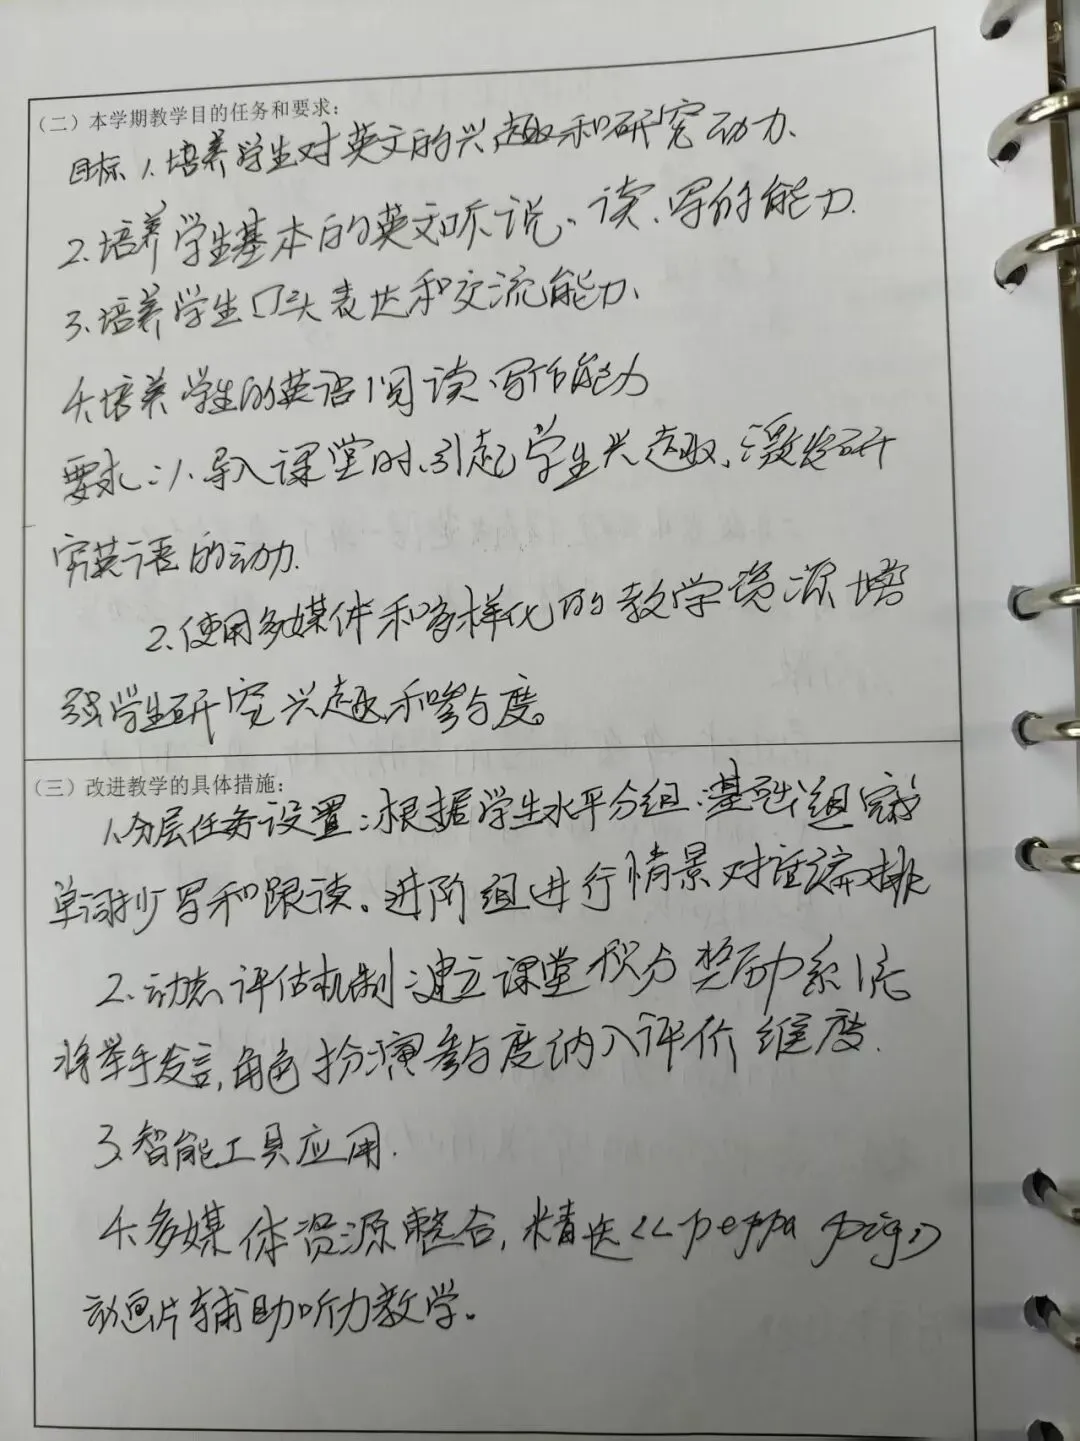 （二）本学期教学目的任务和要求：
目标 1.培养学生对英文的兴趣和研究动力.
2.培养学生基本的英文听、说、读、写的能力.
3.培养学生口头表达和交流能力.
4.培养学生的英语阅读、写作能力
要求：1.导入课堂时、引起学生兴趣、激发研
究英语的动力.
2.使用多媒体和多样化的教学资源增
强学生研究兴趣和参与度。
（三）改进教学的具体措施：
1.分层任务设置：根据学生水平分组.基础组完成
单词抄写和跟读。进阶组进行情景对话编排
2.动态评估机制：建立课堂积分奖励系统
将举手发言,角色扮演参与度纳入评价维度.
3.智能工具应用.
4.多媒体资源整合,精选《Peppa pig》
动画片辅助听力教学。